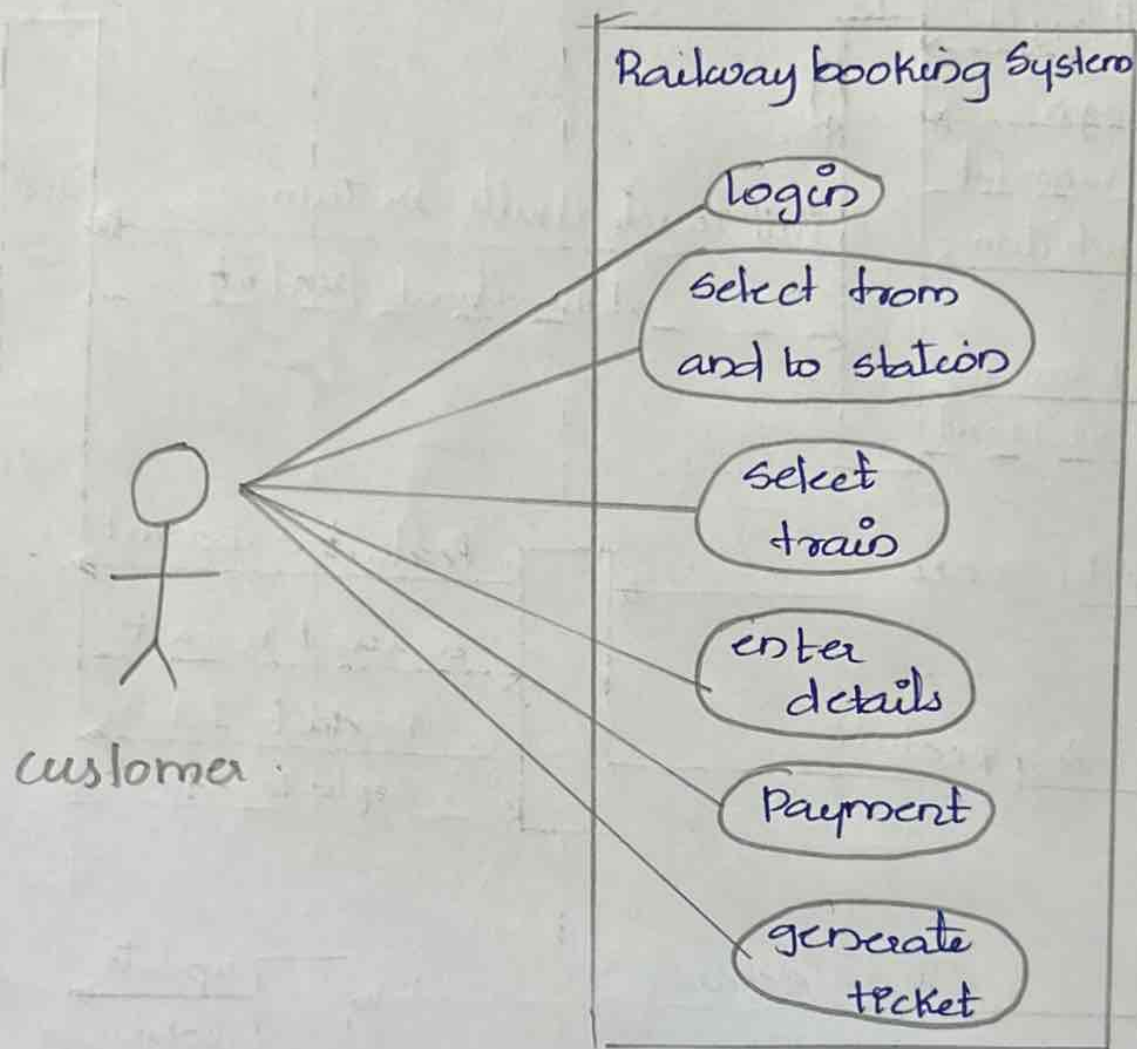 Railway booking System
login
select from
and to station
select
train
enter
details
customer.
Payment
generate
ticket